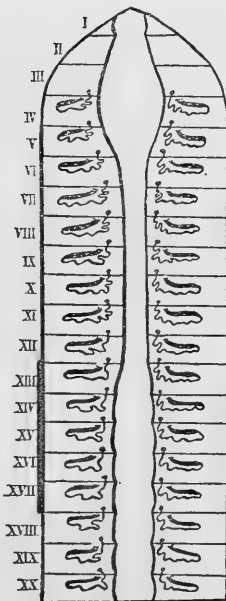 I
II
III
IV
V
VI
VII
VIII
IX
X
XI
XII
XIII
XIV
XV
XVI
XVII
XVIII
XIX
XX